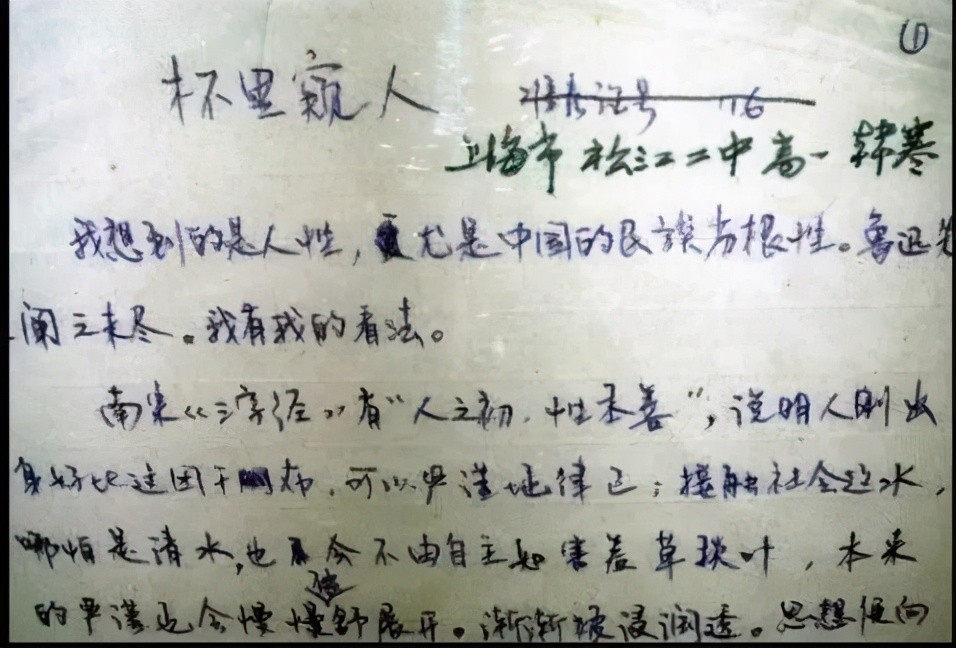 ①
杯里窥人
准考证号 116
上海市松江二中高一 韩寒
我想到的是人性,尤是中国的民族劣根性。鲁迅先
阐之未尽。我有我的看法。
南宋《三字经》有“人之初,性本善”,说明人刚出
好比这团干布,可以严谨地律己;接触社会这水,
哪怕是清水,也会不由自主如害羞草掞叶,本来
的严谨也会慢慢地舒展开。渐渐被浸润透。思想便向